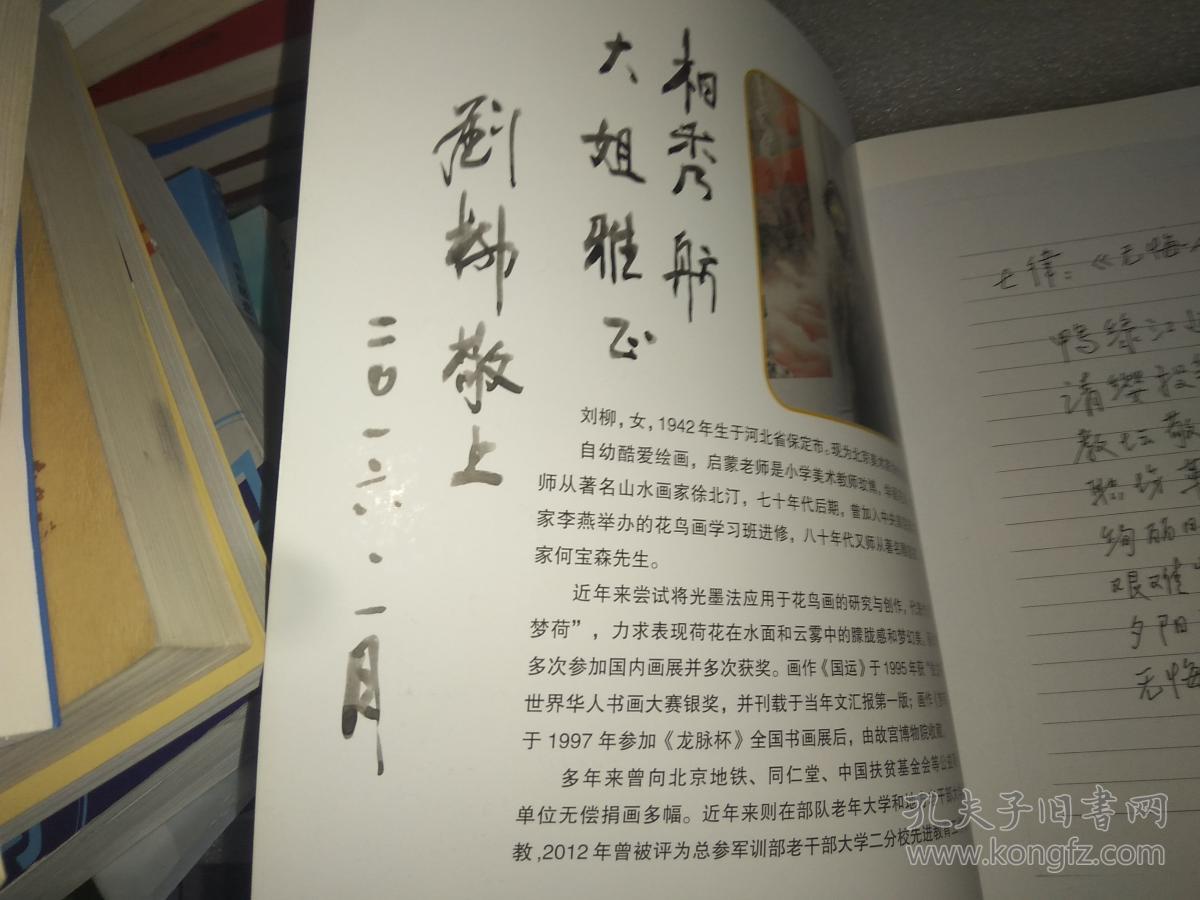 相秀舫
大姐雅正
劉柳敬上
二〇一六.一月
刘柳，女，1942年生于河北省保定市。现为北京美术
自幼酷爱绘画，启蒙老师是小学美术教师
师从著名山水画家徐北汀，七十年代后期，曾加入中央
家李燕举办的花鸟画学习班进修，八十年代又师从著名
家何宝森先生。
近年来尝试将光墨法应用于花鸟画的研究与创作，代
梦荷”，力求表现荷花在水面和云雾中的朦胧感和梦幻美。
多次参加国内画展并多次获奖。画作《国运》于1995年获“
世界华人书画大赛银奖，并刊载于当年文汇报第一版；画作《
于1997年参加《龙脉杯》全国书画展后，由故宫博物院收藏。
多年来曾向北京地铁、同仁堂、中国扶贫基金会等公益
单位无偿捐画多幅。近年来则在部队老年大学和地
教,2012年曾被评为总参军训部老干部大学二分校先进教育工
七律：《无悔
鸭绿江
请缨投
教坛敬
职场
绚丽
艰难
夕阳
无悔
孔夫子旧书网
www.kongfz.com